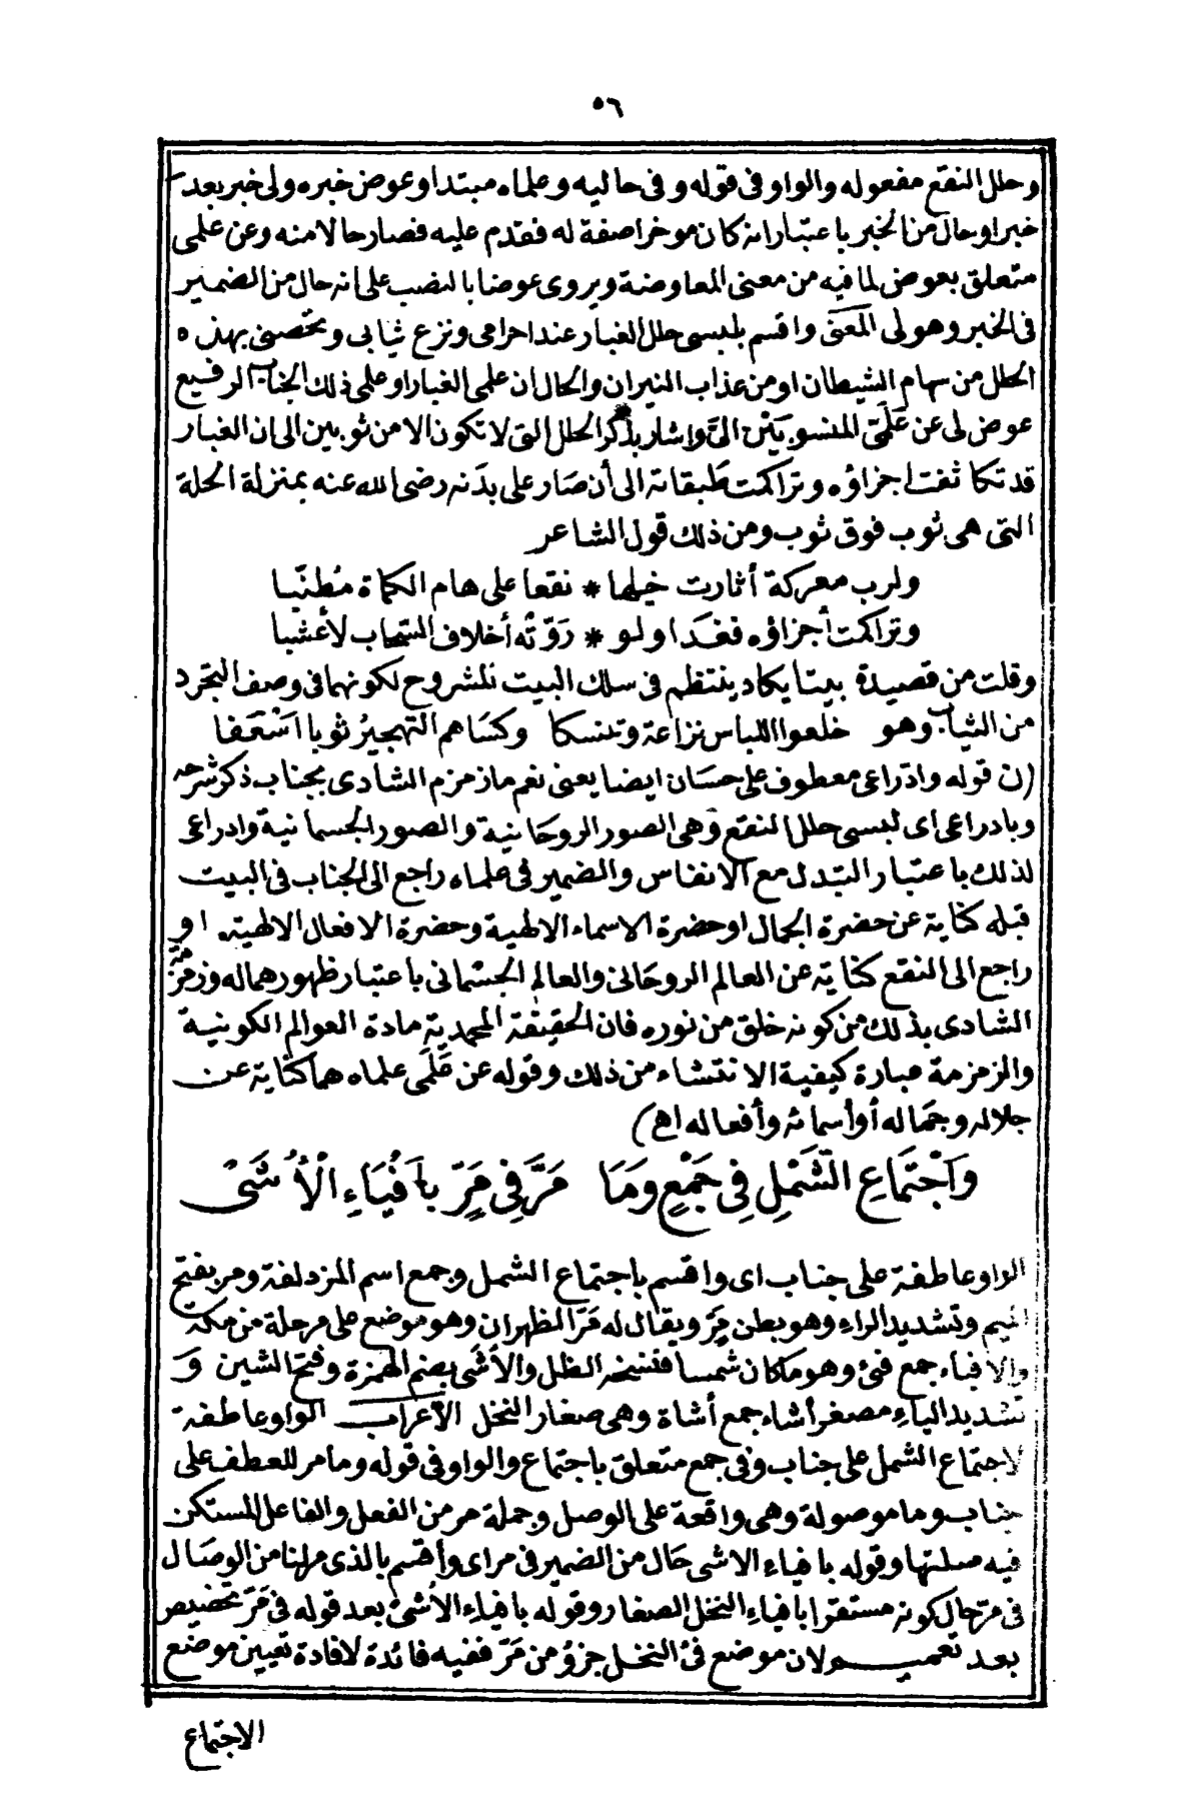 ٥٦
وحلل النقع مفعوله والواو فى قوله و فى حاليه وعلماه مبتدا وعوض خبره ولى خبر بعد
خبر او حال من الخبر باعتبار انه كان موخرا صفة له فقدم عليه فصار حالا منه وعن علمى
متعلق بعوض لما فيه من معنى المعاوضة ويروى عوضا بالنصب على انه حال من الضمير
فى الخبر وهو لى المَعنَى واقسم بلبسى حلل الغبار عند احرامى ونزع ثيابى و تحصنى بهذه
الحلل من سهام الشيطان او من عذاب النيران والحال ان علمى الغبار او علمى ذلك الجناب الرفيع
عوض لى عن عَلَمَىّ المنسوبَيْن الىَّ واشار بذكر الحلل التى لا تكون الا من ثوبين الى ان الغبار
قد تكاثفت اجزاؤه وتراكمت طبقاته الى أن صار على بدنه رضى الله عنه بمنزلة الحلة
التى هى ثوب فوق ثوب ومن ذلك قول الشاعر
ولرب معركة أثارت خيلها * نقعا على هام الكماة مُطنّبا
وتراكمت أجزاؤه فغدا ولو * رَوّتْه أخلاف السّحاب لأعشبا
وقلت من قصيدة بيتا يكاد ينتظم فى سلك البيت المشروح لكونهما فى وصف التجرد
من الثياب وهو خلعوا اللباس نزاعة وتنسكا وكساهم التهجيرُ ثوبا اسْعَفا
(ن قوله وادّراعى معطوف على حسان ايضا يعنى نعم ما زمزم الشادى بجناب ذكر شرحه
وبادراعى اى لبسى حلل النقع وهى الصور الروحانية والصور الجسمانية وادراعى
لذلك باعتبار التبدل مع الانفاس والضمير فى علماه راجع الى الجناب فى البيت
قبله كناية عن حضرة الجمال او حضرة الاسماء الالهية وحضرة الافعال الالهية او
راجع الى النقع كناية عن العالم الروحانى والعالم الجسمانى باعتبار ظهورهما له وزمزمة
الشادى بذلك من كونه خلق من نوره فان الحقيقة المحمدية مادة العوالم الكونية
والزمزمة عبارة كيفية الانتشاء من ذلك وقوله عن عَلَمَى علماه هما كناية عن
جلاله وجماله أو أسمائه وأفعاله اهـ)
وَاَجْتَمَاعِ الشَّمْلِ فِى جَمْعٍ وَمَا مَرَّ فِى مَرٍّ بِأَفْيَاءِ الْأُشَىْ
الواو عاطفة على جناب اى واقسم باجتماع الشمل وجمع اسم المزدلفة ومر بفتح
الميم وتشديد الراء وهو بطن مَرّ ويقال له مَرّ الظهران وهو موضع على مرحلة من مكة
والافياء جمع فئ وهو ما كان شمسا فنسخه الظل والأشَى بضم الهمزة وفتح الشين و
تشديد الياء مصغر أشاء جمع أشاة وهى صغار النخل الأعراب الواو عاطفة
لاجتماع الشمل على جناب وفى جمع متعلق باجتماع والواو فى قوله وما مر للعطف على
جناب وما موصولة وهى واقعة على الوصل وجملة مر من الفعل والفاعل المستكن
فيه صلتها وقوله بافياء الاشى حال من الضمير فى مر اى وأقسم بالذى مر لنا من الوصال
فى مرّ حال كونه مستقرا بافياء النخل الصغار وقوله بافياء الأشئ بعد قوله فى مَرّ تخصيص
بعد تعميم لان موضع فئ النخل جزؤ من مَرّ ففيه فائدة لافادة تعيين موضع
الاجتماع